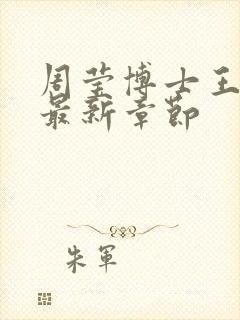 周莹博士王
最新章节
朱軍